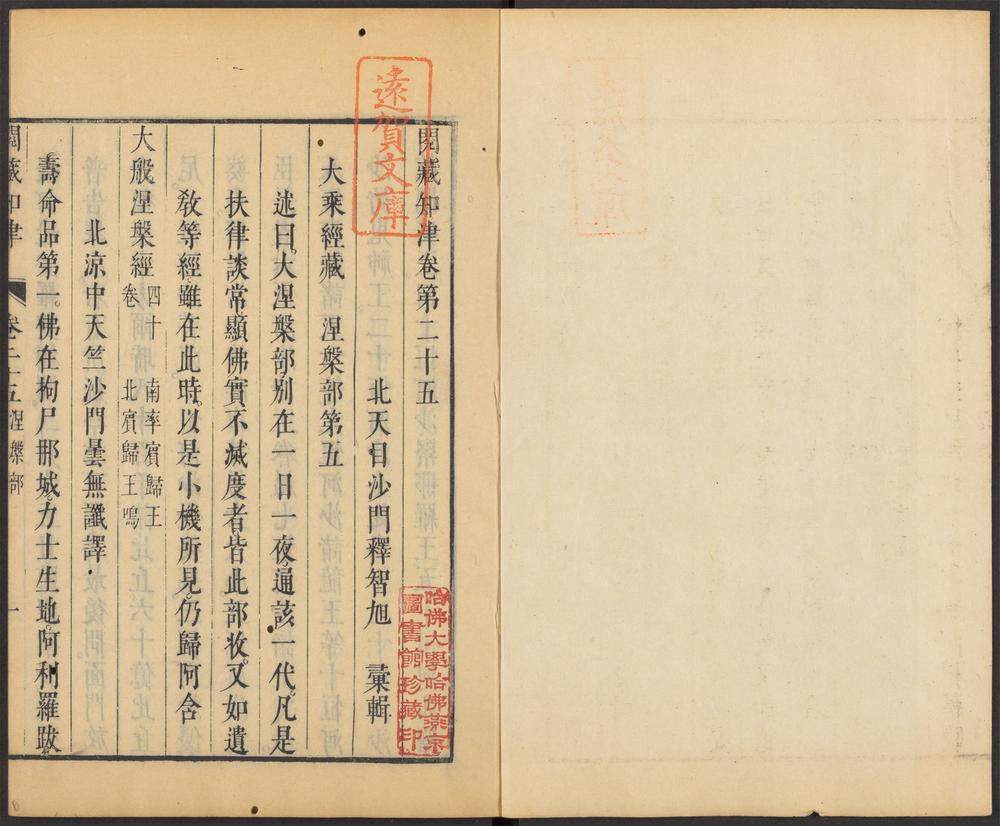 閱藏知津卷第二十五
北天目沙門釋智旭　彙輯
大乘經藏　涅槃部第五
述曰。大涅槃部。別在一日一夜。遍該一代。凡是
扶律談常。顯佛實不滅度者。皆此部收。又如遺
敎等經。雖在此時。以是小機所見。仍歸阿含
大般涅槃經　四十卷　南率賓歸王　北賓歸王鳴
北涼中天竺沙門曇無讖譯
壽命品第一。佛在拘尸那城。力士生地。阿利羅跋
閱藏知津　卷二五　涅槃部　一
遠賀文庫
哈佛大學哈佛燕京
圖書館珍藏印